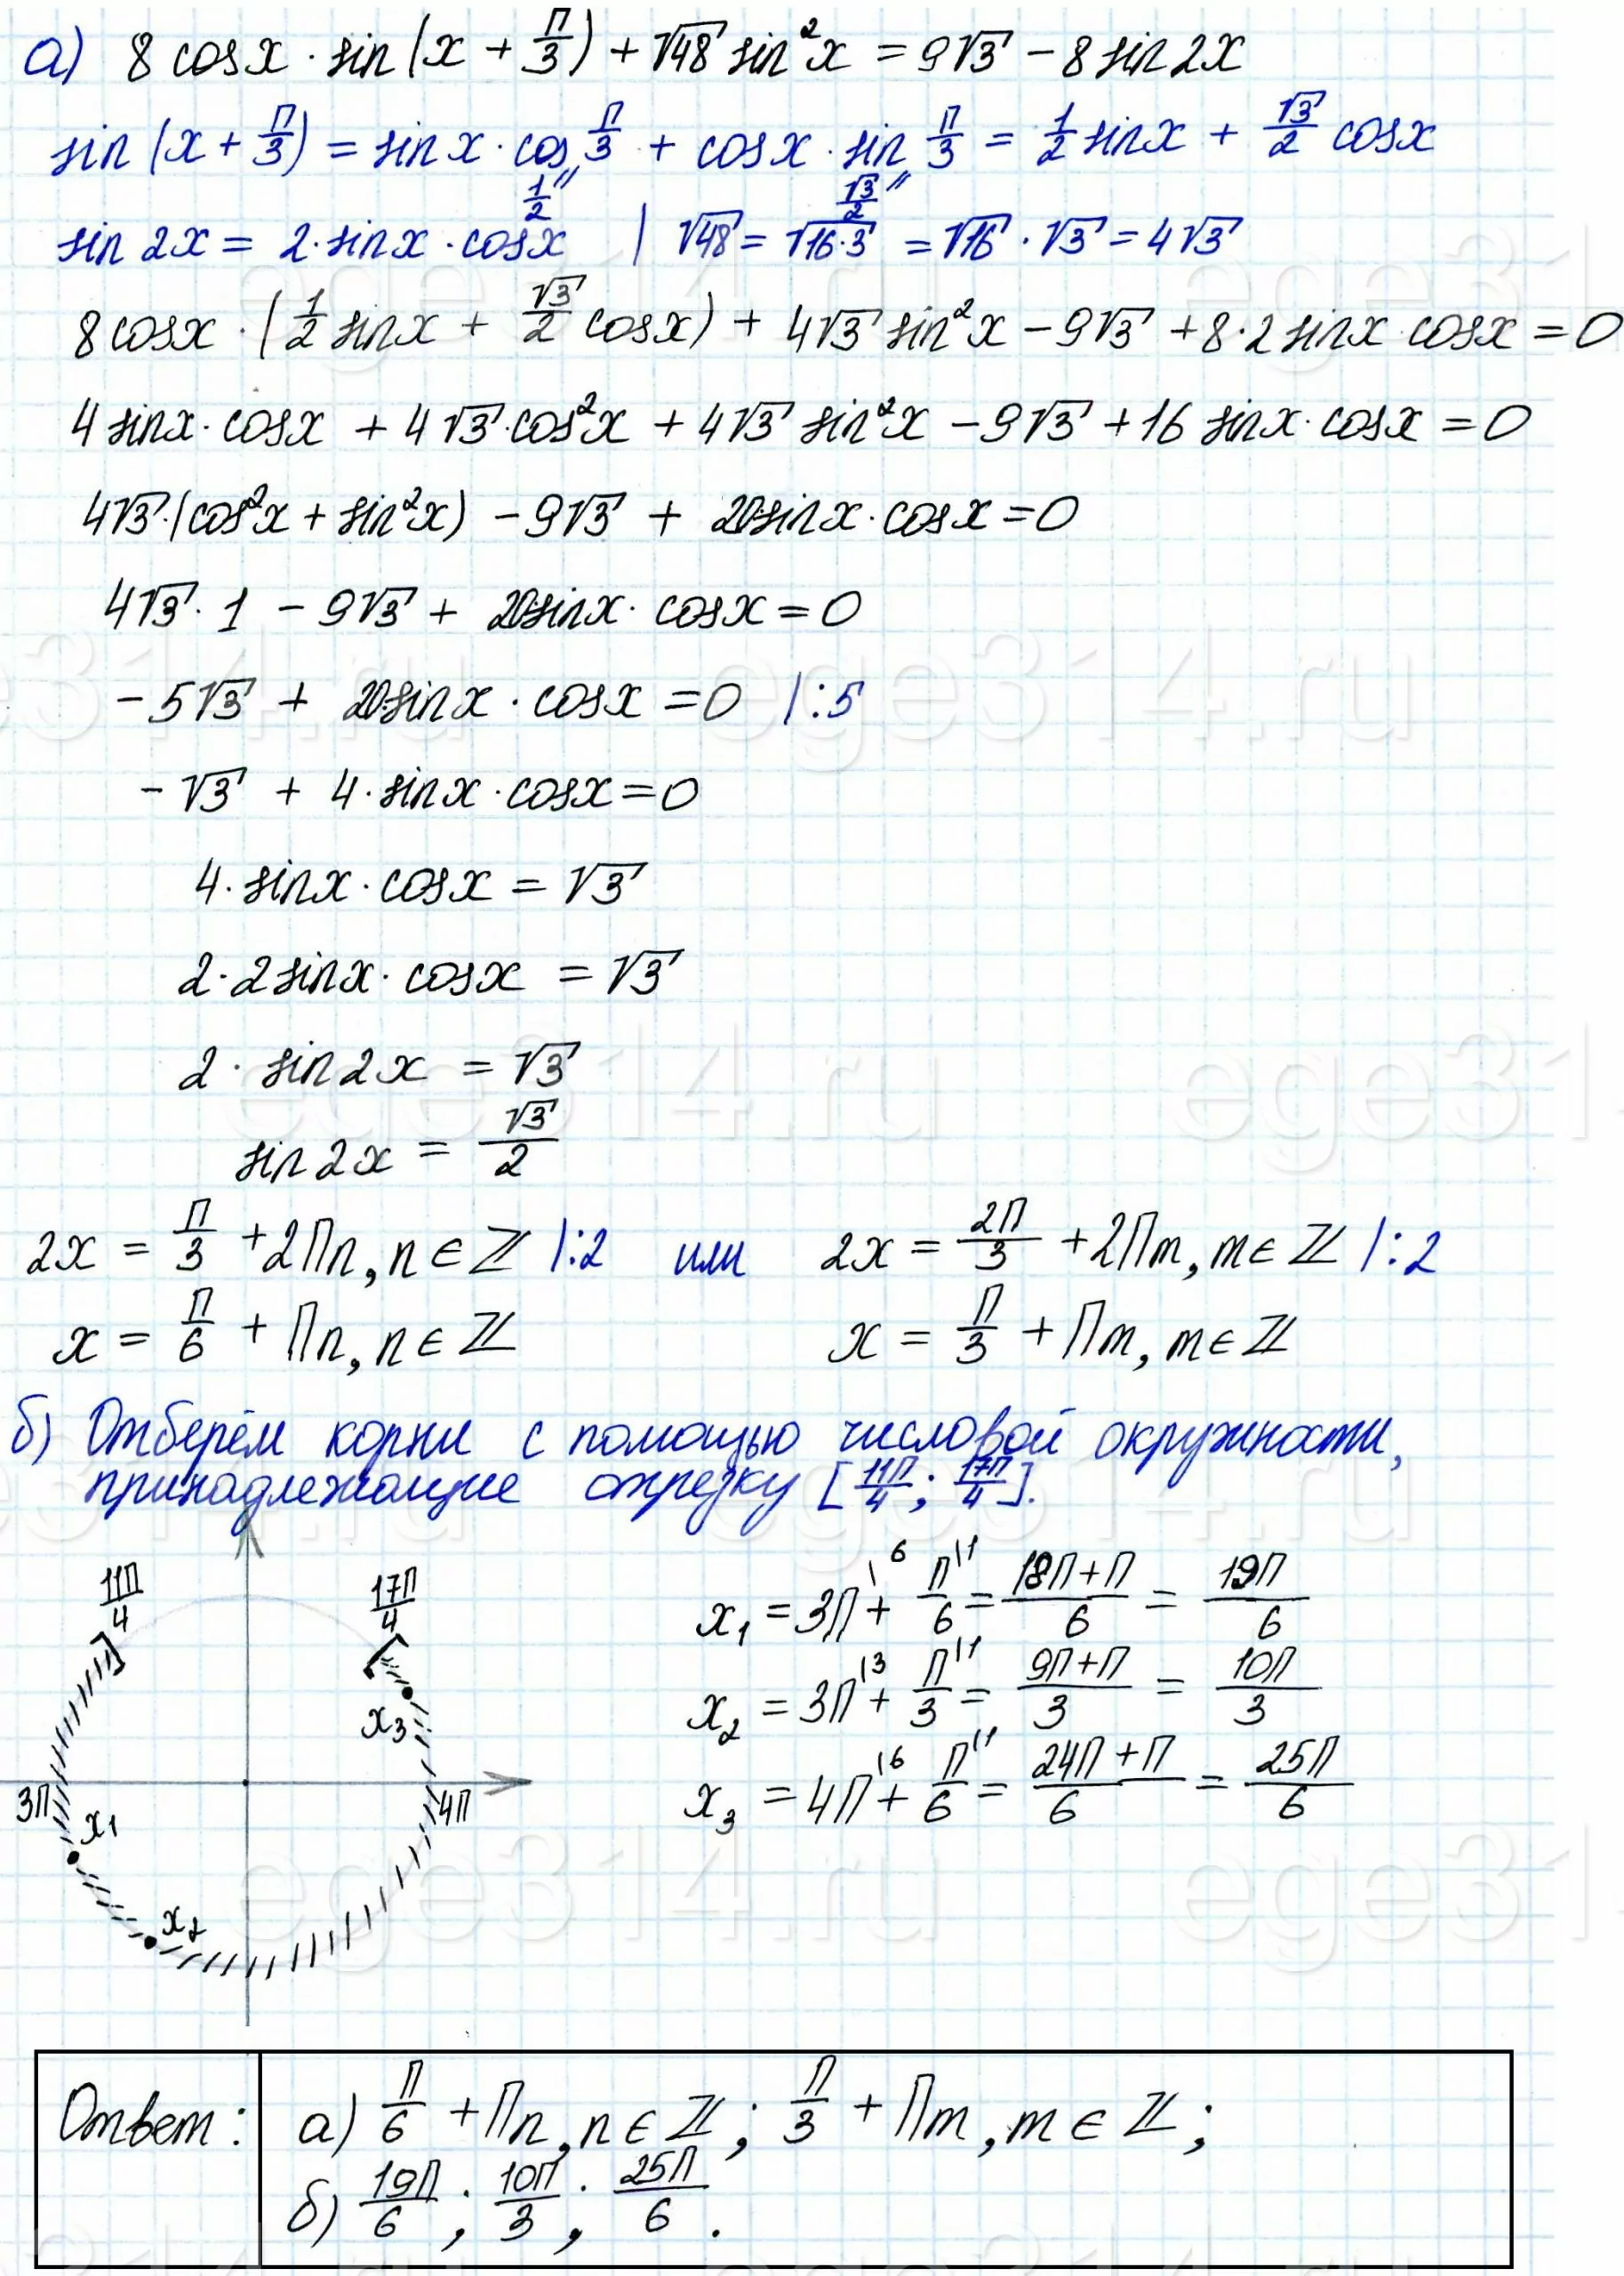 а) 8 cos x · sin (x + П/3) + √48 sin²x = 9√3 − 8 sin 2x
sin (x + П/3) = sin x · cos П/3 + cos x · sin П/3 = 1/2 sin x + √3/2 cos x
1/2 " √3/2 "
sin 2x = 2 · sin x · cos x | √48 = √16·3 = √16 · √3 = 4√3
8 cos x · (1/2 sin x + √3/2 cos x) + 4√3 sin²x − 9√3 + 8·2 sin x cos x = 0
4 sin x · cos x + 4√3 · cos²x + 4√3 sin²x − 9√3 + 16 sin x · cos x = 0
4√3 · (cos²x + sin²x) − 9√3 + 20 sin x · cos x = 0
4√3 · 1 − 9√3 + 20 sin x · cos x = 0
− 5√3 + 20 sin x · cos x = 0 |:5
− √3 + 4 · sin x · cos x = 0
4 · sin x · cos x = √3
2 · 2 sin x · cos x = √3
2 · sin 2x = √3
sin 2x = √3/2
2x = П/3 + 2Пn, n ∈ ℤ |:2 или 2x = 2П/3 + 2Пm, m ∈ ℤ |:2
x = П/6 + Пn, n ∈ ℤ x = П/3 + Пm, m ∈ ℤ
б) Отберём корни с помощью числовой окружности,
принадлежащие отрезку [11П/4 ; 17П/4].
11П/4 17П/4
x3
3П 4П
x1
x2
x1 = 3П\6 + П/6\1 = 18П+П/6 = 19П/6
x2 = 3П\3 + П/3\1 = 9П+П/3 = 10П/3
x3 = 4П\6 + П/6\1 = 24П+П/6 = 25П/6
Ответ: а) П/6 + Пn, n ∈ ℤ ; П/3 + Пm, m ∈ ℤ ;
б) 19П/6 ; 10П/3 ; 25П/6 .
ege314.ru